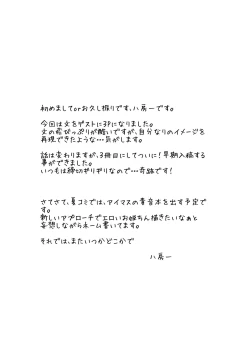 初めましてorお久し振りです、八房一です。
今回は文をゲストに3Pになりました。
文の変ぜっぷりが酷いですが、自分なりのイメージを
再現できたような…気がします。
話は変わりますが、3冊目にしてついに!早期入稿する
事ができました。
いつもは締切ギリギリなので…奇跡です!
さてさて、夏コミでは、アイマスの貴音本を出す予定で
す。
新しいアプローチでエロいお姫ちん描きたいなぁと
妄想しながらネーム書いてます。
それでは、またいつかどこかで
八房一